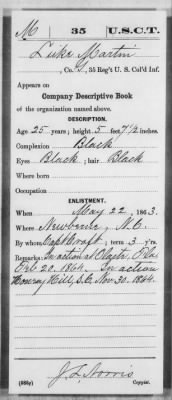 M 35 U.S.C.T.
Luke Martin
, Co. , 35 Reg't U. S. Col'd Inf.
Appears on
Company Descriptive Book
of the organization named above.
DESCRIPTION.
Age 25 years; height 5 feet 7 1/2 inches.
Complexion Black
Eyes Black; hair Black
Where born
Occupation
ENLISTMENT.
When May 22, 1863.
Where Newberne, N.C.
By whom Capt Croft; term 3 y'rs.
Remarks: In action at Olustee, Fla
Feb 20. 1864. In action
Honey Hill, S.C. Nov. 30. 1864.
J. F. Norris
Copyist.